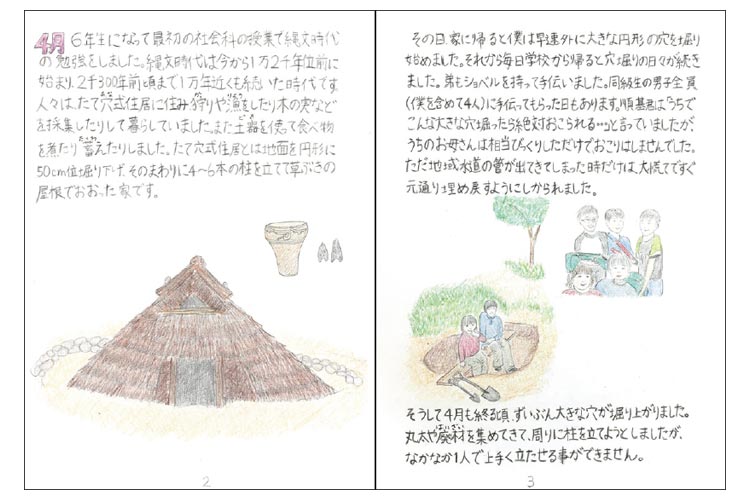 4月 6年生になって最初の社会科の授業で縄文時代
の勉強をしました。縄文時代は今から1万2千年位前に
始まり、2千300年前頃まで1万年近くも続いた時代です。
人々は、たて穴式住居に住み狩りや漁をしたり木の実など
を採集したりして暮らしていました。また土器を使って食べ物
を煮たり蓄えたりしました。たて穴式住居とは地面を円形に
50cm位掘り下げ、そのまわりに4〜6本の柱を立てて草ぶきの
屋根でおおった家です。
2
その日、家に帰ると僕は早速外に大きな円形の穴を掘り
始めました。それから毎日学校から帰ると穴堀りの日々が続き
ました。弟もショベルを持って手伝いました。同級生の男子全員
(僕を含めて4人)に手伝ってもらった日もあります。順基君は「うちで
こんな大きな穴掘ったら絶対おこられる…」と言っていましたが、
うちのお母さんは相当びっくりしただけでおこりはしませんでした。
ただ地域水道の管が出てきてしまった時だけは、大慌てですぐ
元通り埋め戻すようにしかられました。
そうして4月も終る頃、ずいぶん大きな穴が掘り上がりました。
丸太や廃材を集めてきて、周りに柱を立てようとしましたが、
なかなか1人で上手く立たせる事ができません。
3